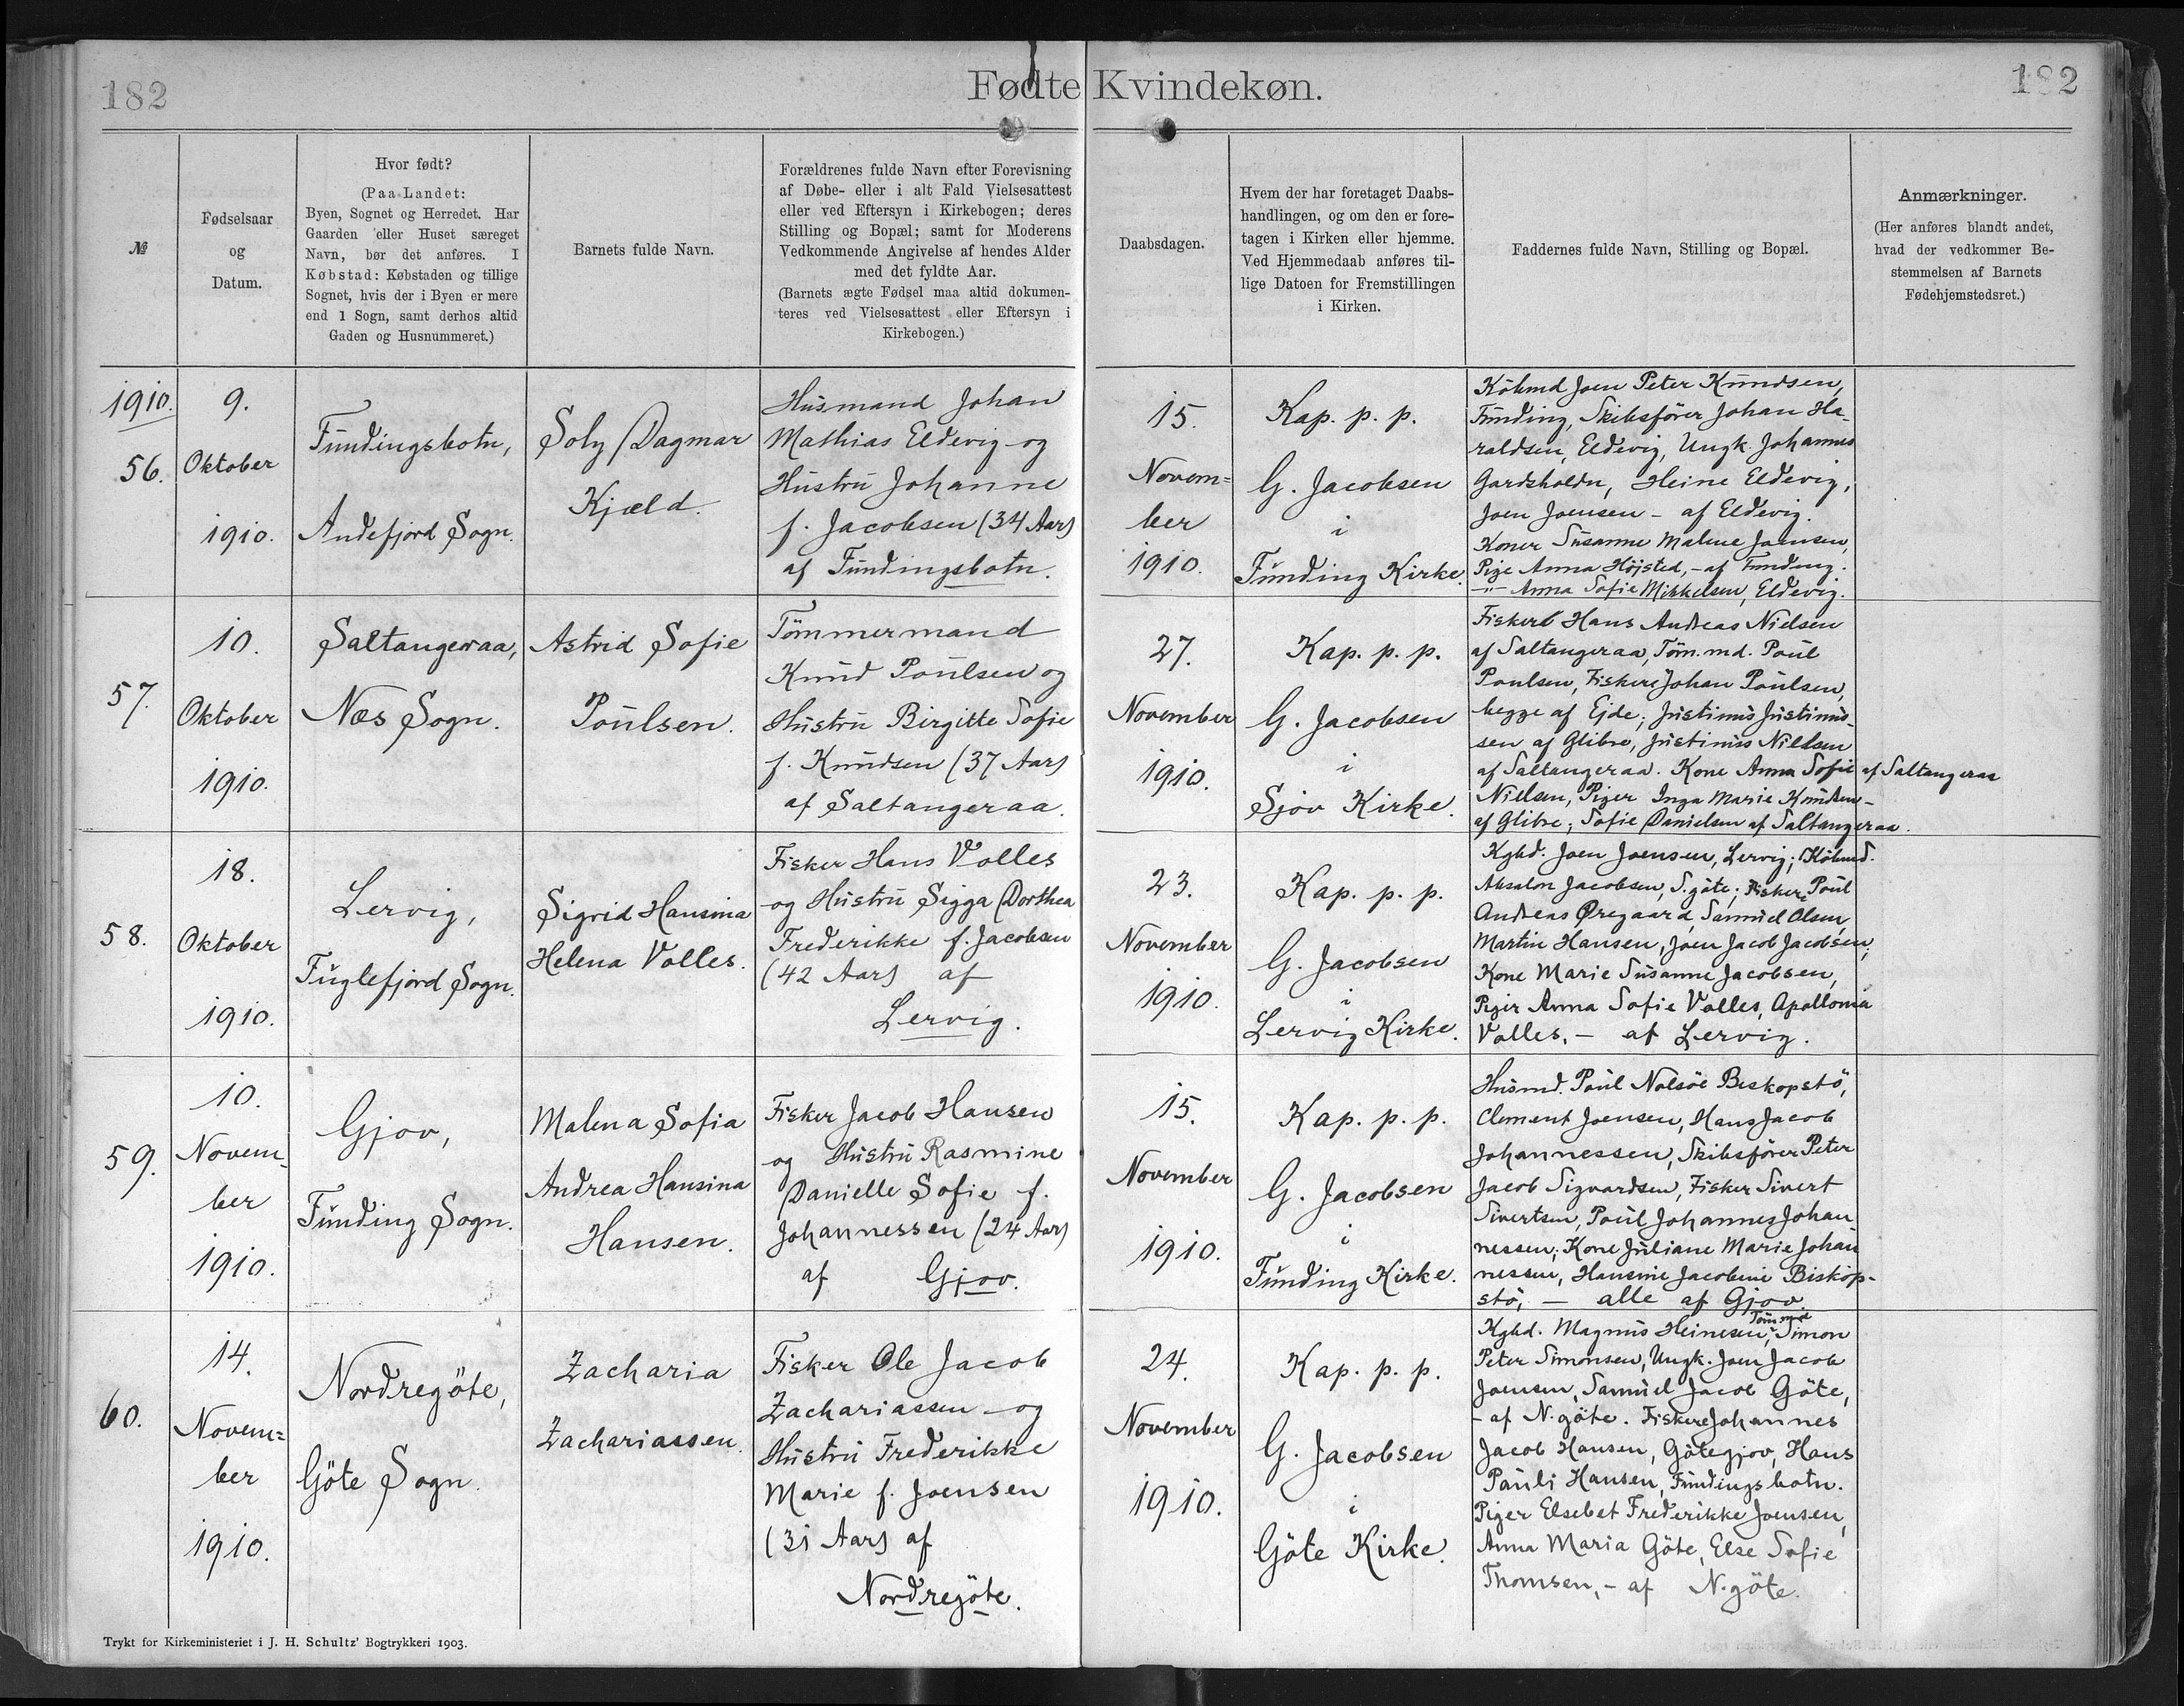 182
Fødte Kvindekøn.
182
№
Fødselsaar
og
Datum.
Hvor født?
(Paa Landet:
Byen, Sognet og Herredet. Har
Gaarden eller Huset særeget
Navn, bør det anføres. I
Købstad: Købstaden og tillige
Sognet, hvis der i Byen er mere
end 1 Sogn, samt derhos altid
Gaden og Husnummeret.)
Barnets fulde Navn.
Forældrenes fulde Navn efter Forevisning
af Døbe- eller i alt Fald Vielsesattest
eller ved Eftersyn i Kirkebogen; deres
Stilling og Bopæl; samt for Moderens
Vedkommende Angivelse af hendes Alder
med det fyldte Aar.
(Barnets ægte Fødsel maa altid dokumen-
teres ved Vielsesattest eller Eftersyn i
Kirkebogen.)
Daabsdagen.
Hvem der har foretaget Daabs-
handlingen, og om den er fore-
tagen i Kirken eller hjemme.
Ved Hjemmedaab anføres til-
lige Datoen for Fremstillingen
i Kirken.
Faddernes fulde Navn, Stilling og Bopæl.
Anmærkninger.
(Her anføres blandt andet,
hvad der vedkommer Be-
stemmelsen af Barnets
Fødehjemstedsret.)
1910.
56.
9.
Oktober
1910.
Fundingsbotn,
Andefjord Sogn.
Soly Dagmar
Kjæld.
Husmand Johan
Mathias Eldevig og
Hustru Johanne
f. Jacobsen (34 Aar)
af Fundingsbotn.
15.
Novem=
ber
1910.
Kap. p. p.
G. Jacobsen
i
Funding Kirke.
Købmd Joen Peter Knudsen,
Funding, Skibsfører Johan Ha-
raldsen, Eldevig, Ungk. Johannes
Gardsholdn, Heine Eldevig,
Joen Joensen - af Eldevig.
Koner Susanne Malene Joensen,
Pige Anna Højsted, - af Funding.
-"- Anna Sofie Mikkelsen, Eldevig.
57.
10.
Oktober
1910.
Saltangeraa,
Næs Sogn.
Astrid Sofie
Poulsen.
Tömmermand
Knud Poulsen og
Hustru Birgitte Sofie
f. Knudsen (37 Aar)
af Saltangeraa.
27.
November
1910.
Kap. p. p.
G. Jacobsen
i
Sjov Kirke.
Fisker Hans Andreas Nielsen
af Saltangeraa, Töm.md. Poul
Poulsen, Fiskere Johan Poulsen,
begge af Ejde; Justinus Justinus-
sen af Glibre, Justinus Nielsen
af Saltangeraa. Kone Anna Sofie af Saltangeraa
Nielsen, Piger Inga Marie Knudsen -
af Glibre; Sofie Danielsen af Saltangeraa.
58.
18.
Oktober
1910.
Lervig,
Fuglefjord Sogn.
Sigrid Hansina
Helena Volles.
Fisker Hans Volles
og Hustru Sigga Dorthea
Frederikke f. Jacobsen
(42 Aar) af
Lervig.
23.
November
1910.
Kap. p. p.
G. Jacobsen
i
Lervig Kirke.
Kgbd. Joen Joensen, Lervig; Købmd.
Absalon Jacobsen, S.göte; Fisker Poul
Andreas Øregaard, Samuel Olsen,
Martin Hansen, Joen Jacob Jacobsen;
Kone Marie Susanne Jacobsen,
Piger Anna Sofie Volles, Apollonia
Volles. - af Lervig.
59.
10.
Novem-
ber
1910.
Gjov,
Funding Sogn.
Malena Sofia
Andrea Hansina
Hansen.
Fisker Jacob Hansen
og Hustru Rasmine
Danielle Sofie f.
Johannessen (24 Aar)
af Gjov.
15.
November
1910.
Kap. p. p.
G. Jacobsen
i
Funding Kirke.
Husmd. Poul Nolsöe Biskopstö,
Clement Joensen, Hans Jacob
Johannessen, Skibsfører Peter
Jacob Sigvardsen, Fisker Sivert
Sivertsen, Poul Johannes Johan
nessen; Kone Juliane Marie Johan
nessen, Hansine Jacobine Biskop-
stö, - alle af Gjov.
60.
14.
Novem=
ber
1910.
Nordregöte,
Göte Sogn.
Zacharia
Zachariassen.
Fisker Ole Jacob
Zachariassen og
Hustru Frederikke
Marie f. Joensen
(31 Aar) af
Nordregöte.
24.
November
1910.
Kap. p. p.
G. Jacobsen
i
Göte Kirke.
Kgbd. Magnus Heinesen, Töm.md Simon
Peter Simonsen, Ungk. Joen Jacob
Joensen, Samuel Jacob Göte,
- af N.göte. Fiskere Johannes
Jacob Hansen, Götegjov, Hans
Pauli Hansen, Fundingsbotn.
Piger Elsebet Frederikke Joensen,
Anna Maria Göte, Else Sofie
Thomsen, - af N.göte.
Trykt for Kirkeministeriet i J. H. Schultz' Bogtrykkeri 1903.